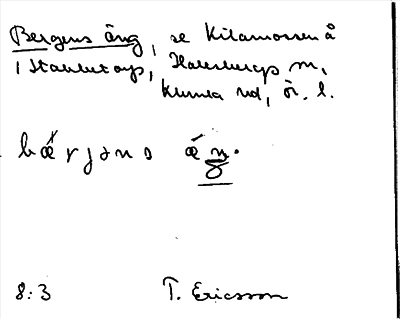 Bergens äng, se Kilamossen å
i Stavlutorp, Hallsbergs m,
Kumla hd, ör. l.
bæ̀rjəns ǽŋ.
8:3 T. Ericsson